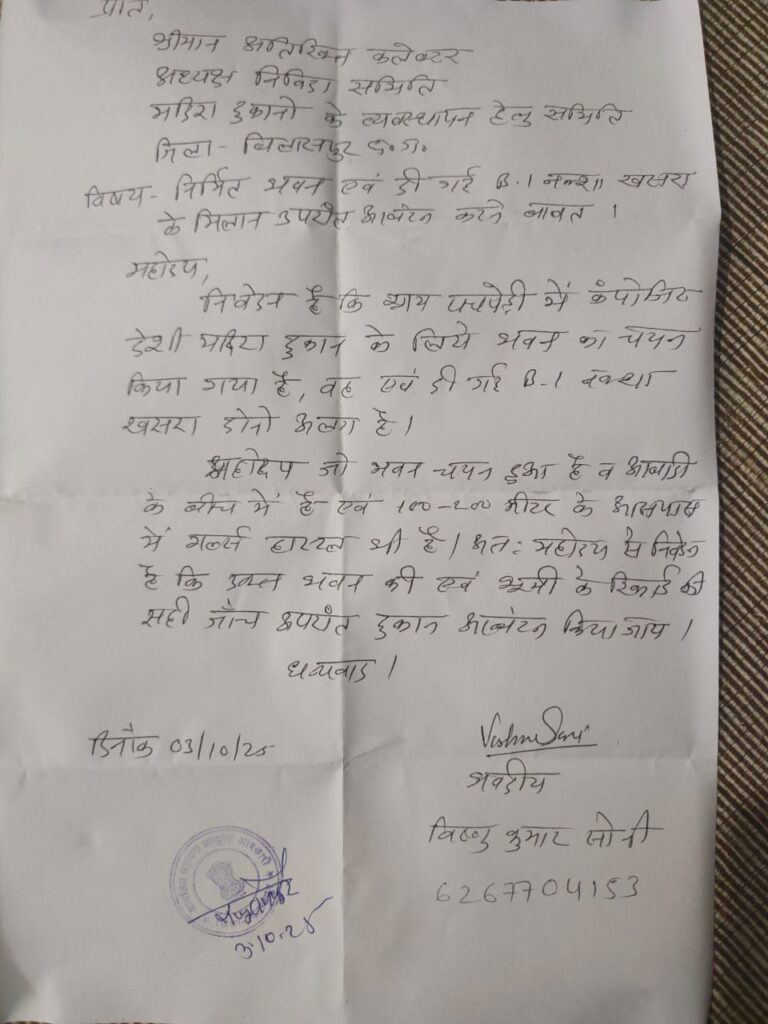 प्रति,
श्रीमान अतिरिक्त कलेक्टर
अध्यक्ष निविदा समिति
मदिरा दुकानो के व्यवस्थापन हेतु समिति
जिला - बिलासपुर छ.ग.
विषय - निर्मित भवन एवं दी गई B-1 नक्शा खसरा
के मिलान उपरांत आबंटन करने बावत ।
महोदय,
निवेदन है कि ग्राम पचपेड़ी में कंपोजिट
देशी मदिरा दुकान के लिये भवन का चयन
किया गया है, वह एवं दी गई B-1 नक्शा
खसरा दोनो अलग है।
महोदय जो भवन चयन हुआ है व आबादी
के बीच में है एवं 100-200 मीटर के आसपास
में गर्ल्स हास्टल भी है। अतः महोदय से निवेदन
है कि उक्त भवन की एवं भूमी के रिकार्ड की
सही जाँच उपरांत दुकान आबंटन किया जाय ।
धन्यवाद ।
दिनाँक 03/10/25
Vishnu Soni
भवदीय
विष्णु कुमार सोनी
6267704153
3.10.25